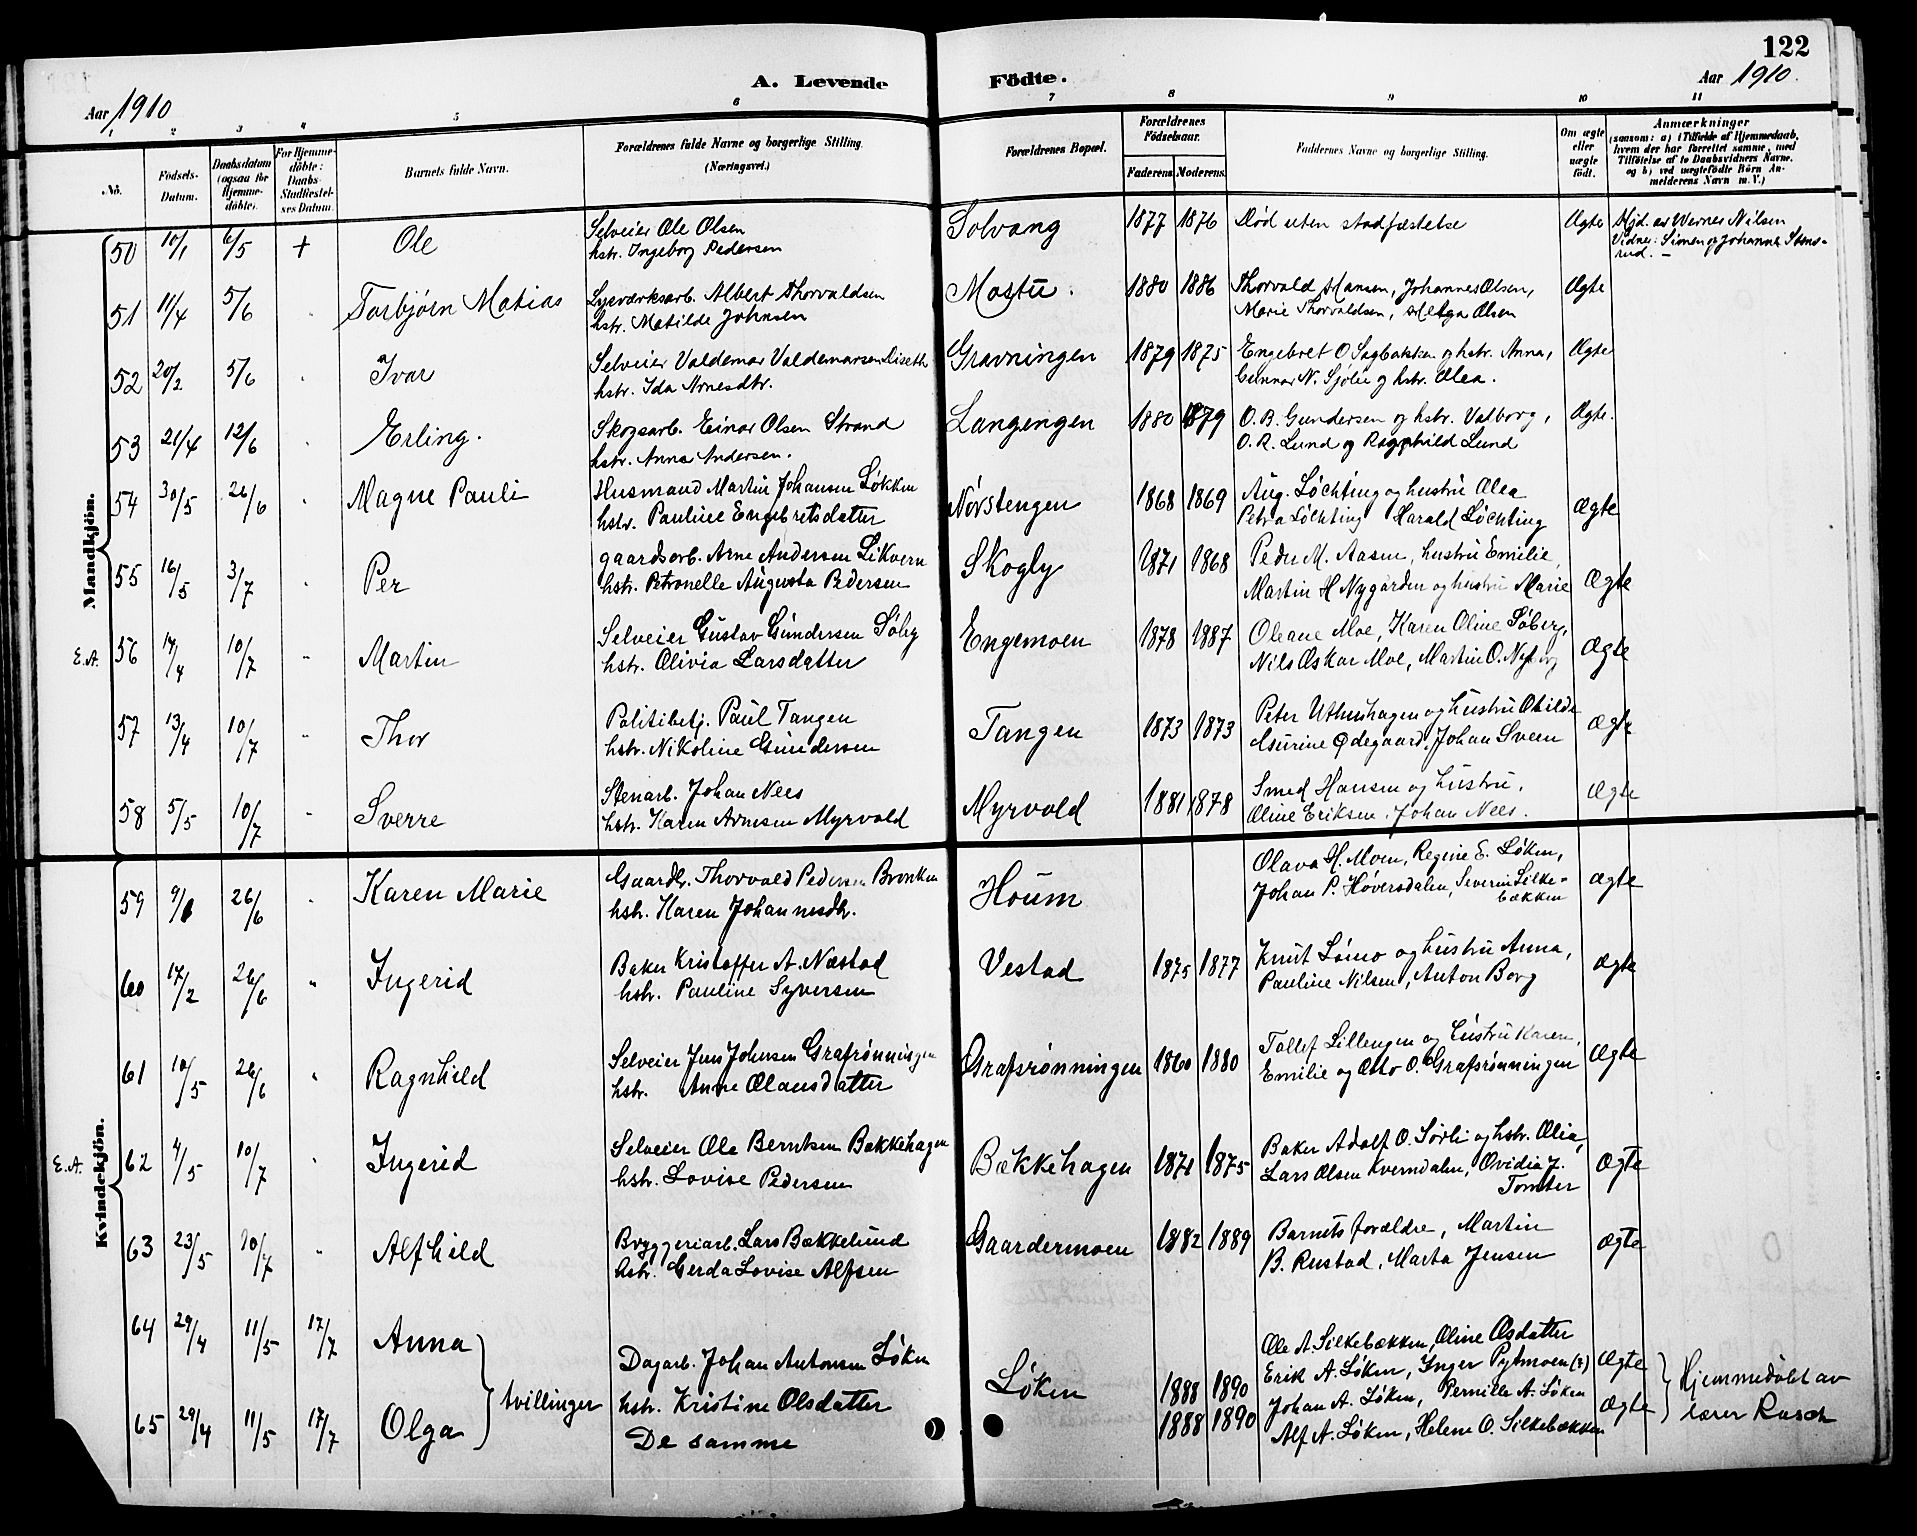 122
A. Levende Födte.
Aar 1910
Aar 1910.
1 2 3 4 5 6 7 8 9 10 11
No.
Födsels-
Datum.
Daabsdatum
(ogsaa for
Hjemme-
döbte).
For Hjemme-
döbte:
Daabs-
Stadfæstel-
ses Datum.
Barnets fulde Navn.
Forældrenes fulde Navne og borgerlige Stilling.
(Næringsvei.)
Forældrenes Bopæl.
Forældrenes
Födselsaar.
Faderens. Moderens.
Faddernes Navne og borgerlige Stilling.
Om ægte
eller
uægte
født.
Anmærkninger
(saasom: a) (Tilfælde af Hjemmedaab,
hvem der har forrettet samme, med
Tilföielse af to Daabsvidners Navne.
og b) ved uægtefödte Börn An-
melderens Navn m. V.)
Mandkjön.
50 10/1 6/5 + Ole Selveier Ole Olsen Solvang 1877 1876 Død uten stadfæstelse Ægte Hjd. av Werner Nilsen
hstr. Ingeborg Pedersen Vidner: Simen og Johanne Stens-
rud. –
51 11/4 5/6 Torbjørn Matias Lysværksarb. Albert Thorvaldsen Mostu. 1880 1886 Thorvald Hansen, Johannes Olsen, Ægte
hstr. Matilde Johnsen Marie Thorvaldsen, Helga Olsen
52 20/2 5/6 Ivar Selveier Valdemar Valdemarsen Diseth Gravningen 1879 1875 Engebret O Sagbakken og hstr. Anna, Ægte
hstr. Ida Arnesdtr. Gunnar N. Sjølie og hstr. Olea.
53 21/4 12/6 Erling. Skogsarb. Einar Olsen Strand Langengen 1880 1879 O. B. Gundersen og hstr. Valborg, Ægte.
hstr. Anna Andersen. O. R. Lund og Ragnhild Lund
54 30/5 26/6 Magne Pauli Husmand Martin Johansen Løkken Nørstengen 1868 1869 Aug. Løchting og hustru Olea Ægte
hstr. Pauline Engebretsdatter Petra Løchting Harald Løchting
55 16/5 3/7 Per gaardsarb. Arne Andersen Likvern Skogly 1871 1868 Peder M. Aasen, hustru Emilie, Ægte
hstr. Petronelle Augusta Pedersen Martin H Nygården og hustru Marie
E.A. 56 17/4 10/7 Martin Selveier Gustav Gundersen Søby Engemoen 1878 1887 Oleane Moe, Karen Oline Søberg, Ægte
hstr. Olivia Larsdatter Nils Oskar Moe, Martin O. Nyborg
57 13/4 10/7 Thor Politibetj. Paul Tangen Tangen 1873 1873 Peter Uthushagen og hustru Otilde Ægte
hstr. Nikoline Gundersen Gurine Ødegaard, Johan Sveen
58 5/5 10/7 Sverre Stenarb. Johan Nees Myrvold 1881 1878 Smed Hansen og hustru, Ægte
hstr. Karen Arnesen Myrvold Oline Eriksen, Johan Nees.
Kvindekjön.
59 9/1 26/6 Karen Marie Gaardbr. Thorvald Pedersen Bronken Houm Olava H. Moen, Regine E. Løken, Ægte
hstr. Karen Johannesdtr. Johan P. Høversdalen, Severin Silke-
bækken
60 17/2 26/6 Ingerid Baker Kristoffer A. Næstad Vestad 1875 1877 Knut Lømo og hustru Anna, Ægte
hstr. Pauline Syversen Pauline Nilsen, Anton Borg
61 10/5 26/6 Ragnhild Selveier Jens Johnsen Grafsrønningen Grafsrønningen 1860 1880 Tollef Lillengen og hustru Karen, Ægte
hstr. Anne Olausdatter Emilie og Otto O. Grafsrønningen
E.A. 62 4/5 10/7 Ingerid Selveier Ole Berntsen Bækkehagen Bækkehagen 1871 1875 Baker Adolf O. Sørli og hstr. Olia, Ægte
hstr. Lovise Pedersen Lars Olsen Kverndalen, Ovidia J.
Tomter
63 23/5 10/7 Alfhild Bryggeriarb. Lars Bækkelund Gaardermoen 1882 1889 Barnets forældre, Martin Ægte
hstr. Gerda Lovise Alfsen B. Rustad, Marta Jensen
64 29/4 11/5 17/7 Anna tvillinger Dagarb. Johan Antonsen Løken Løken 1888 1890 Ole A Silkebækken, Oline Olsdatter Ægte
hstr. Kristine Olsdatter Erik A. Løken, Inger Pytmoen (?) Hjemmedøbt av
65 29/4 11/5 17/7 Olga De samme 1888 1890 Johan A. Løken, Pernille A. Løken Ægte lærer Rasch
Alf A. Løken, Helene O. Silkebækken